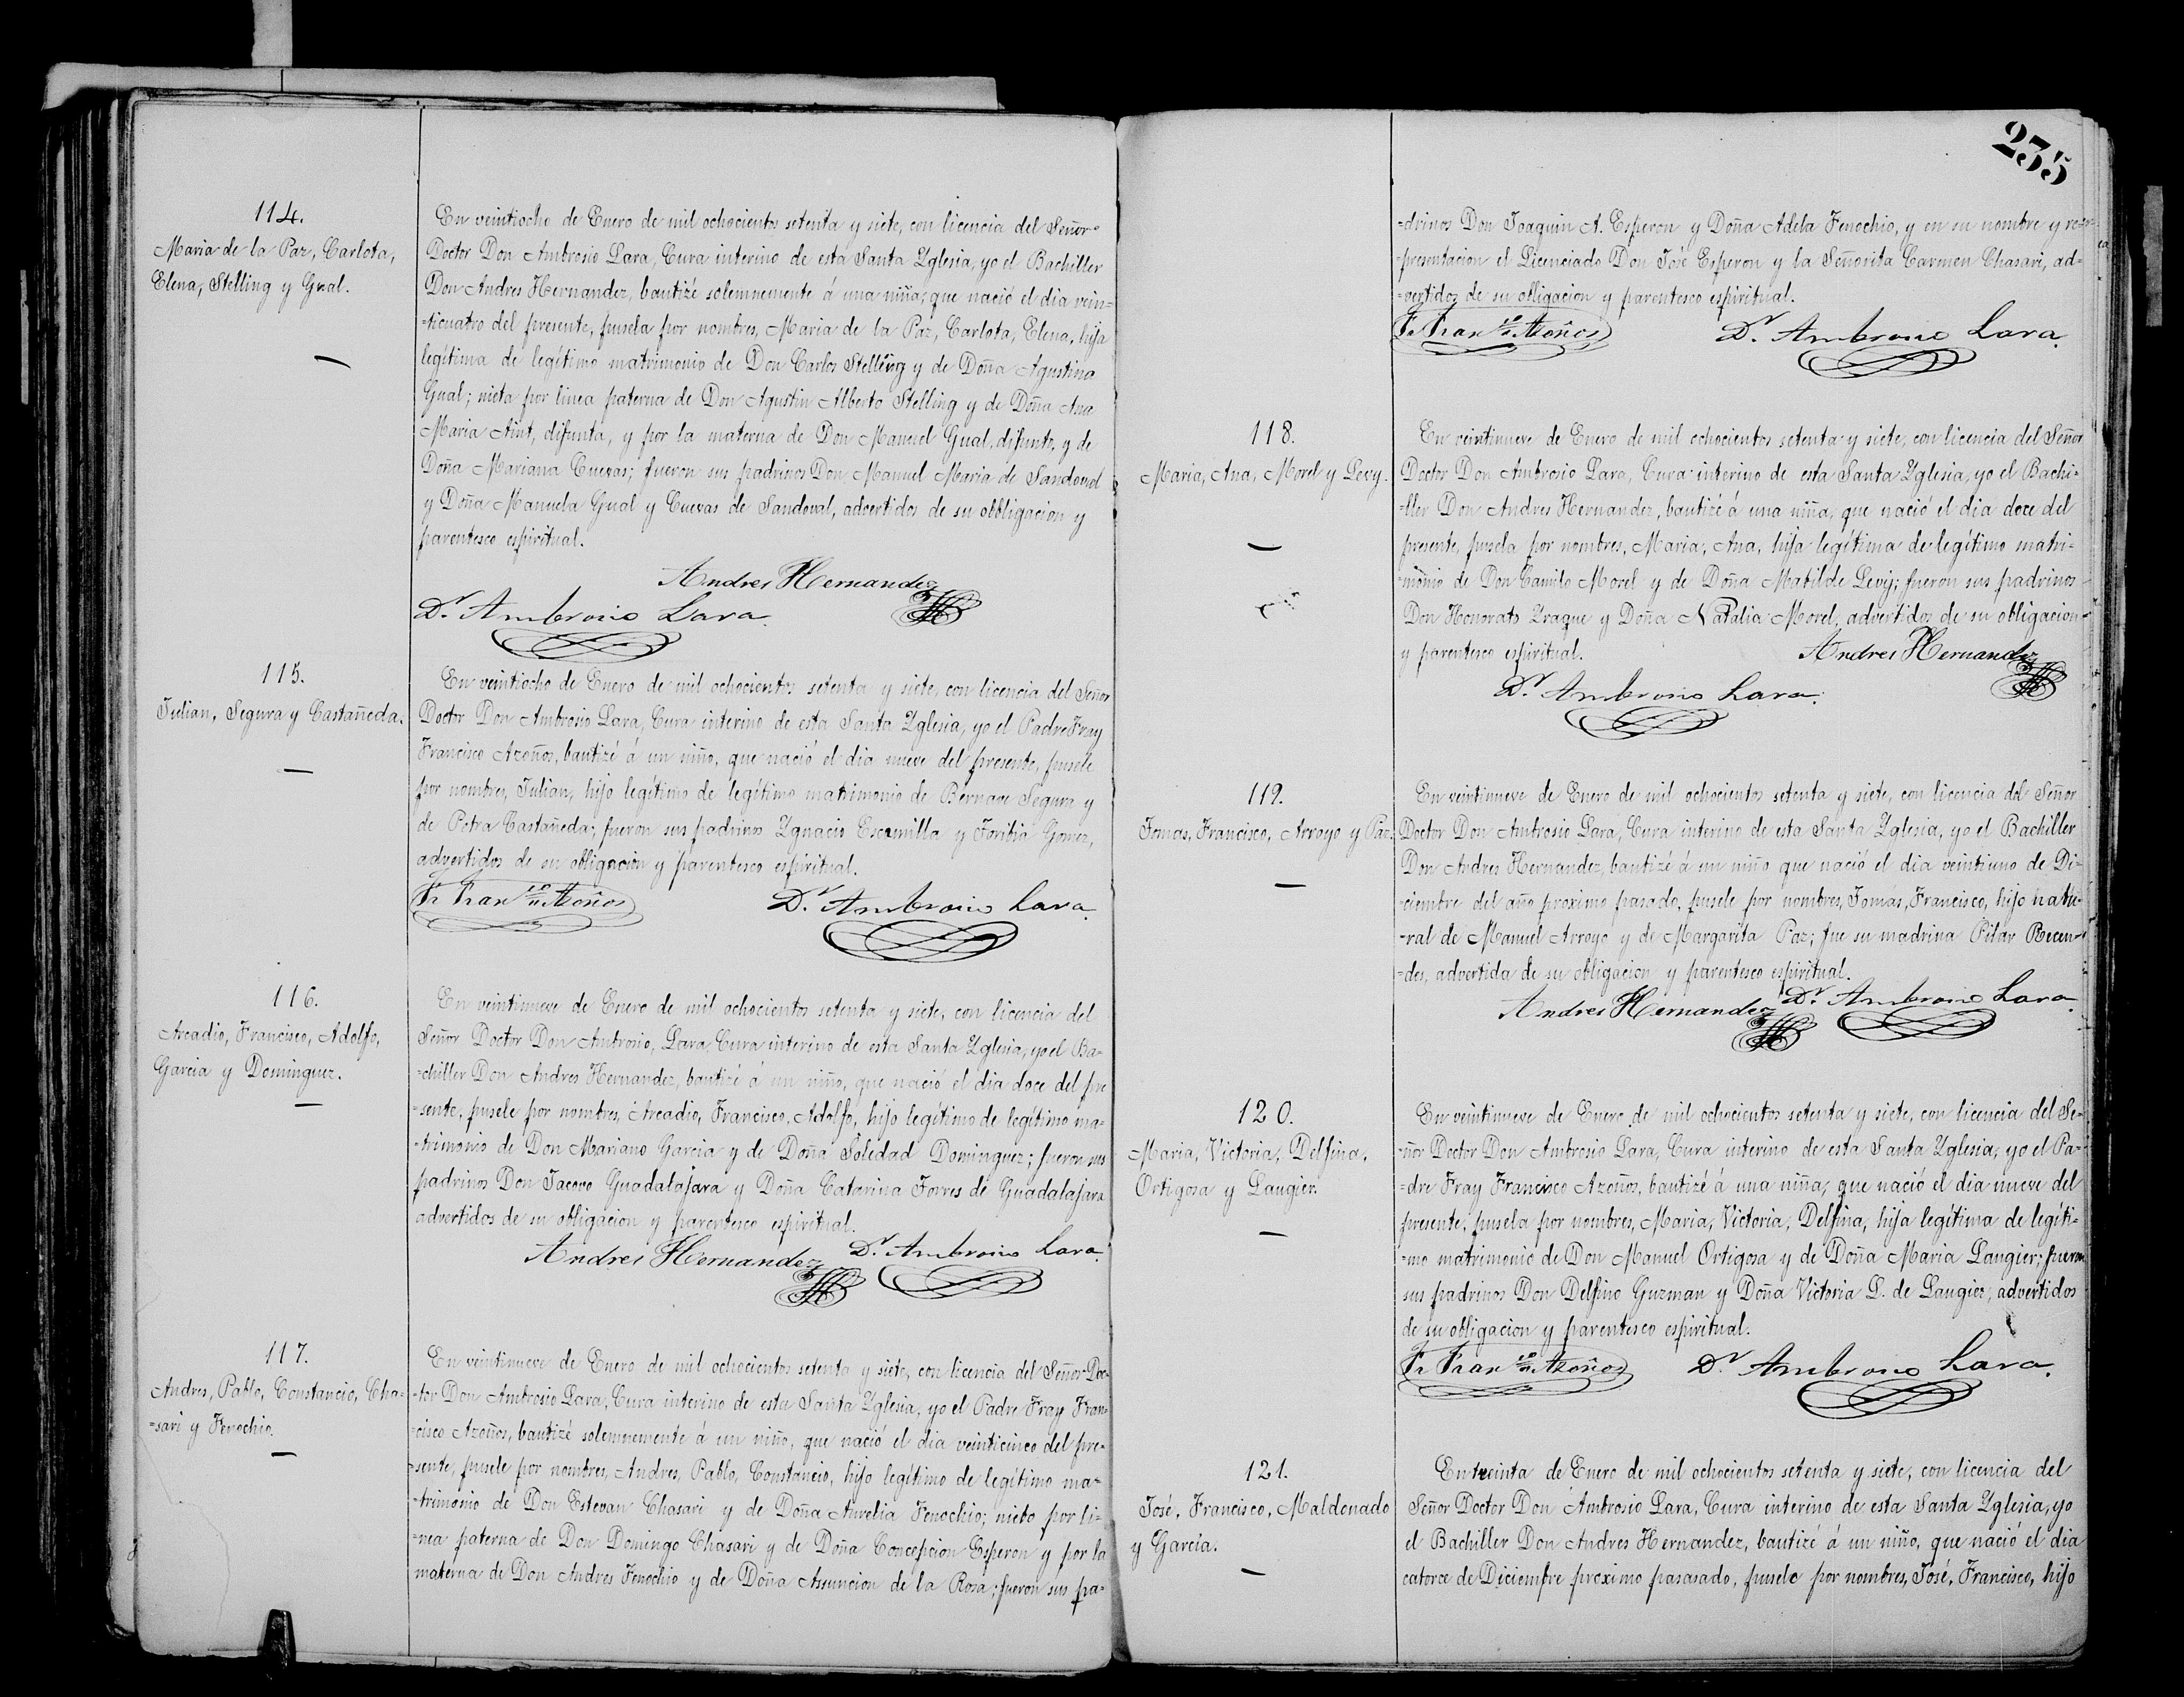 114.
Maria de la Paz, Carlota,
Elena, Stelling y Gual.
En veintiocho de Enero de mil ochocientos setenta y siete, con licencia del Señor
Doctor Don Ambrosio Lara, Cura interino de esta Santa Yglesia, yo el Bachiller
Don Andres Hernandez, bautizé solemnemente á una niña, que nació el dia vein-
=ticuatro del presente, pusela por nombres, Maria de la Paz, Carlota, Elena, hija
legítima de legítimo matrimonio de Don Carlos Stelling y de Doña Agustina
Gual; nieta por linea paterna de Don Agustin Alberto Stelling y de Doña Ana
Maria Aint, difunta, y por la materna de Don Manuel Gual, difunto, y de
Doña Mariana Cuevas; fueron sus padrinos Don Manuel Maria de Sandoval
y Doña Manuela Gual y Cuevas de Sandoval, advertidos de su obbligacion y
parentesco espiritual.
Andres Hernandez
Dr. Ambrosio Lara.
115.
Julian, Segura y Castañeda.
En veintiocho de Enero de mil ochocientos setenta y siete, con licencia del Señor
Doctor Don Ambrosio Lara, Cura interino de esta Santa Yglesia, yo el Padre Fray
Francisco Azoños, bautizé á un niño, que nació el dia nueve del presente, pusele
por nombres, Julian, hijo legítimo de legítimo matrimonio de Bernave Segura y
de Petra Castañeda; fueron sus padrinos Ygnacio Escamilla y Toribia Gomez,
advertidos de su obligacion y parentesco espiritual.
Fr Franco Azoños
Dr. Ambrosio Lara.
116.
Arcadio, Francisco, Adolfo,
Garcia y Dominguez.
En veintinueve de Enero de mil ochocientos setenta y siete, con licencia del
Señor Doctor Don Ambrosio, Lara, Cura interino de esta Santa Yglesia, yo el Ba-
=chiller Don Andres Hernandez, bautizé á un niño, que nació el dia doce del pre
=sente, pusele por nombres, Arcadio, Francisco, Adolfo, hijo legítimo de legítimo ma-
=trimonio de Don Mariano Garcia y de Doña Soledad Dominguez; fueron sus
padrinos Don Jacovo Guadalajara y Doña Catarina Torres de Guadalajara
advertidos de su obligacion y parentesco espiritual.
Andres Hernandez Dr. Ambrosio Lara.
117.
Andres, Pablo, Constancio, Cha-
=sari y Fenochio.
En veintinueve de Enero de mil ochocientos setenta y siete, con licencia del Señor Doc-
=tor Don Ambrosio Lara, Cura interino de esta Santa Yglesia, yo el Padre Fray Fran-
=cisco Azoños, bautizé solemnemente á un niño, que nació el dia veinticinco del pre-
=sente, pusele por nombres, Andres, Pablo, Constancio, hijo legítimo de legítimo ma-
=trimonio de Don Estevan Chasari y de Doña Aurelia Fenochio; nieto por li-
=nea paterna de Don Domingo Chasari y de Doña Concepcion Esperon y por la
materna de Don Andres Fenochio y de Doña Assuncion de la Rosa; fueron sus pa-
235
=drinos Don Joaquin A. Esperon y Doña Adela Fenochio, y en su nombre y re-
=presentacion el Licenciado Don José Esperon y la Señorita Carmen Chasari, ad=
=vertidos de su obligacion y parentesco espiritual.
Fr Franco Azoños
Dr. Ambrosio Lara.
118.
Maria, Ana, Morel y Levy.
En veintinueve de Enero de mil ochocientos setenta y siete, con licencia del Señor
Doctor Don Ambrosio Lara, Cura interino de esta Santa Yglesia, yo el Bachi-
=ller Don Andres Hernandez, bautizé á una niña, que nació el dia doce del
presente, pusela por nombres, Maria, Ana, hija legítima de legítimo matri-
=monio de Don Camilo Morel y de Doña Matilde Levy; fueron sus padrinos
Don Honorato Yraque y Doña Natalia Morel, advertidos de su obligacion
y parentesco espiritual.
Andres Hernandez
Dr. Ambrosio Lara.
119.
Tomas, Francisco, Arroyo y Paz.
En veintinueve de Enero de mil ochocientos setenta y siete, con licencia del Señor
Doctor Don Ambrosio Lara, Cura interino de esta Santa Yglesia, yo el Bachiller
Don Andres Hernandez, bautizé á un niño que nació el dia veintiuno de Di-
=ciembre del año proximo pasado, pusele por nombres, Tomás, Francisco, hijo natu-
=ral de Manuel Arroyo y de Margarita Paz; fue su madrina Pilar Recen-
=des, advertida de su obligacion y parentesco espiritual.
Andres Hernandez Dr. Ambrosio Lara.
120.
Maria, Victoria, Delfina,
Ortigosa y Laugier.
En veintinueve de Enero de mil ochocientos setenta y siete, con licencia del Se-
=ñor Doctor Don Ambrosio Lara, Cura interino de esta Santa Yglesia, yo el Pa-
=dre Fray Francisco Azoños, bautizé á una niña, que nació el dia nueve del
presente, pusela por nombres, Maria, Victoria, Delfina, hija legítima de legíti-
=mo matrimonio de Don Manuel Ortigosa y de Doña Maria Laugier; fueron
sus padrinos Don Delfino Guzman y Doña Victoria L. de Laugier, advertidos
de su obligacion y parentesco espiritual.
Fr Franco Azoños
Dr. Ambrosio Lara.
121.
José, Francisco, Maldonado
y García.
En treinta de Enero de mil ochocientos setenta y siete, con licencia del
Señor Doctor Don Ambrosio Lara, Cura interino de esta Santa Yglesia, yo
el Bachiller Don Andres Hernandez, bautizé á un niño, que nació el dia
catorce de Diciembre proximo pasasado, pusele por nombres, José, Francisco, hijo